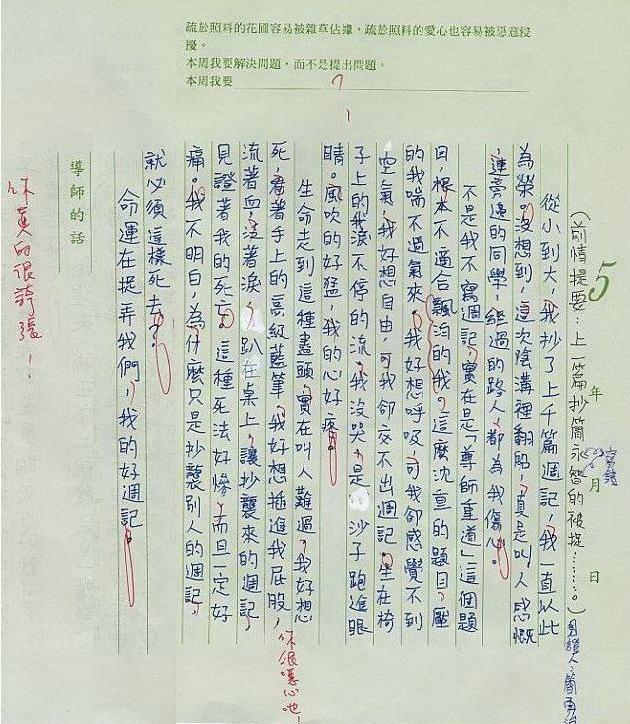 疏於照料的花圃容易被雜草佔據，疏於照料的愛心也容易被惡意侵
擾。
本周我要解決問題，而不是提出問題。
本周我要
5 年 月 日
(前情提要：上一篇抄簡永智的被捉……。)
從小到大，我抄了上千篇週記，我一直以此
為榮。沒想到，這次陰溝裡翻船，真是叫人感慨
，連旁邊的同學，經過的路人，都為我傷心。
不是我不寫週記，實在是「尊師重道」這個題
目，根本不適合飄泊的我。這麼沈重的題目，壓
的我喘不過氣來。我好想呼吸，可我卻感覺不到
空氣，我好想自由，可我卻交不出週記。坐在椅
子上的我，淚不停的流，我沒哭，是沙子跑進眼
睛。風吹的好猛，我的心好疼。
生命走到這種盡頭，實在叫人難過。我好想
死，看著手上的高級藍筆，我好想插進我屁股，
你很噁心吔！
流著血，泛著淚，趴在桌上，讓抄襲來的週記，
見證著我的死亡。這種死法好慘，而且一定好
痛。我不明白，為什麼只是抄襲別人的週記，
就必須這樣死去？
命運在捉弄我們，我的好週記。
導師的話
你真的很誇張！